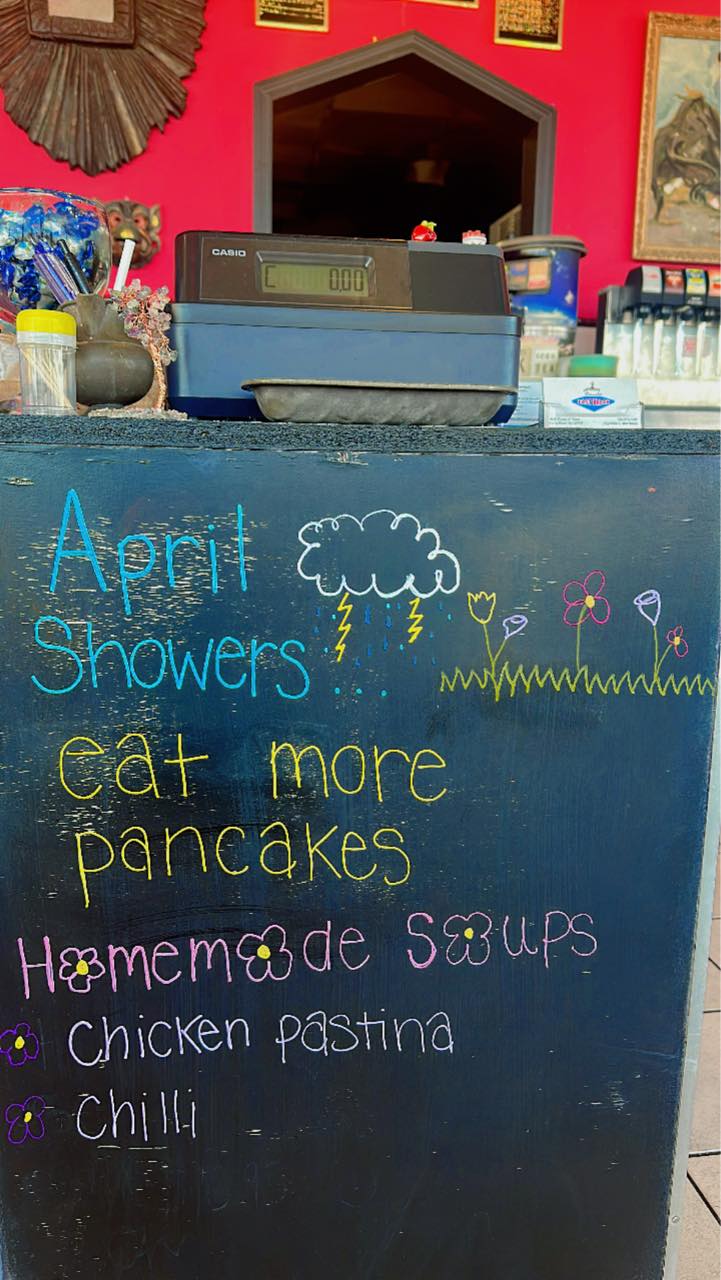 CASIO
C 0.00
April
Showers...
eat more
pancakes
Homemade Soups
Chicken pastina
Chilli